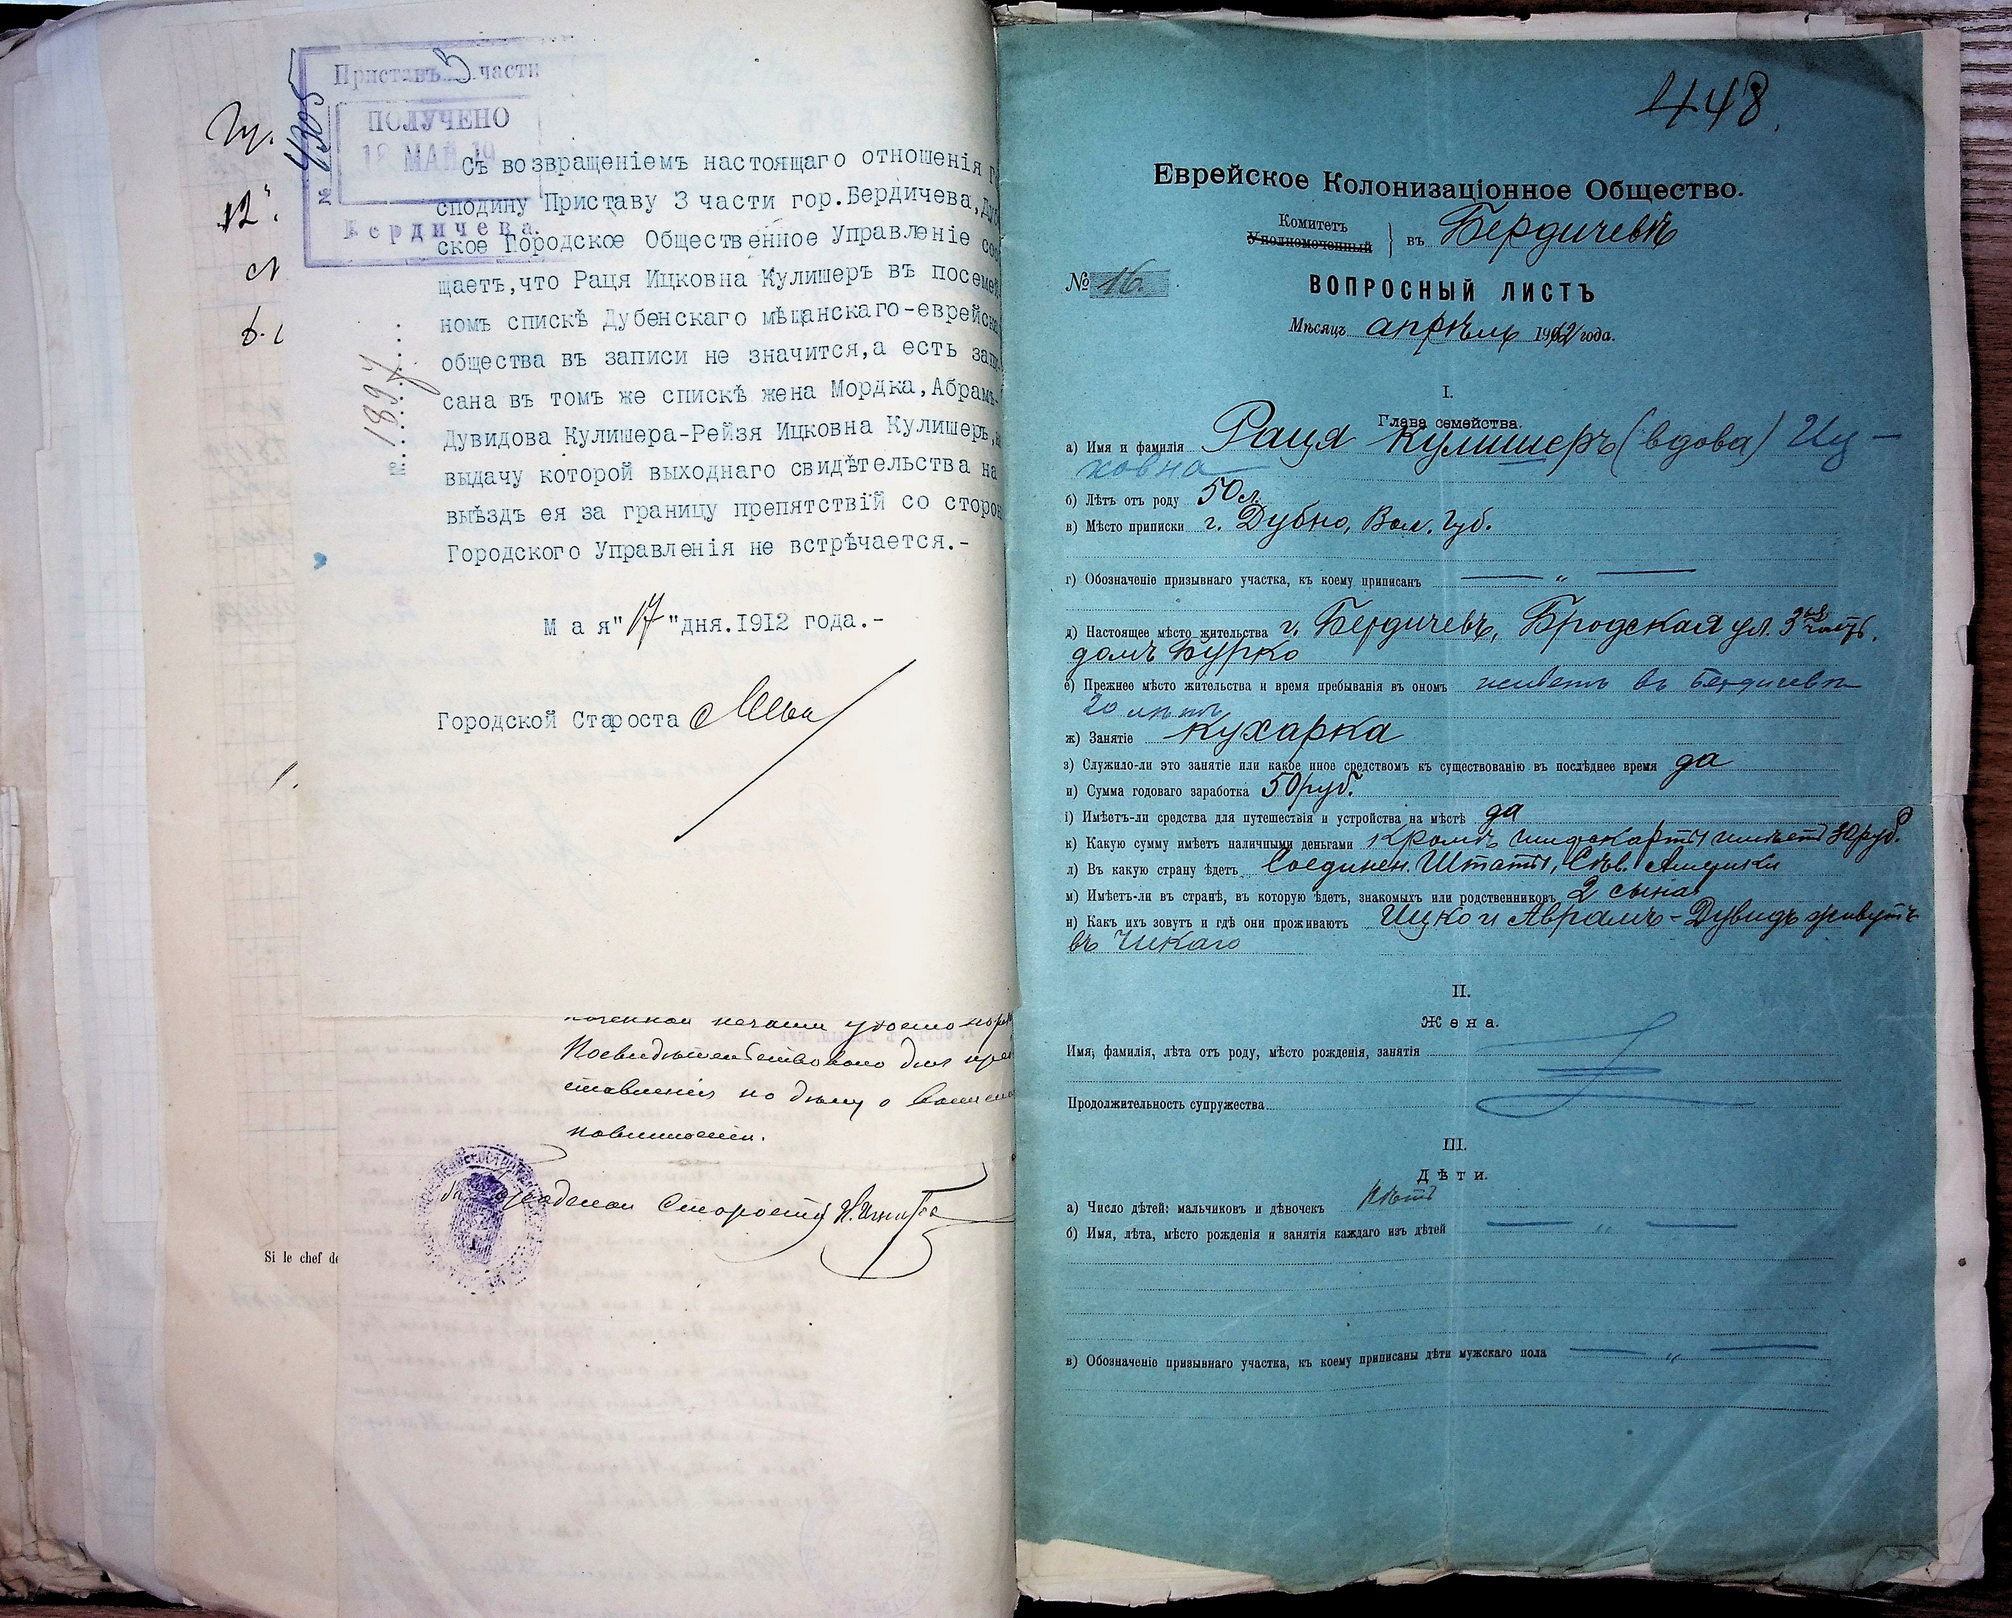 Приставъ 3 части
ПОЛУЧЕНО
18 МАЙ 19
Бердичева.
№ 4305
12
Съ возвращеніемъ настоящаго отношенія г
сподину Приставу 3 части гор.Бердичева, Ду
ское Городское Общественное Управленіе соо
щаетъ,что Раця Ицковна Кулишеръ въ посемей
номъ спискѣ Дубенскаго мѣщанскаго-еврейска
общества въ записи не значится,а есть запи
сана въ томъ же спискѣ жена Мордка,Абрамъ-
Дувидова Кулишера-Рейзя Ицковна Кулишеръ,н
выдачу которой выходнаго свидѣтельства на
выѣздъ ея за границу препятствій со сторон
Городского Управленія не встрѣчается.-
№ 1897
М а я" 17 "дня.1912 года.-
Городской Староста
ставленія по дѣлу о воинско
повинности.
Городской Староста
Si le chef de
448.
Еврейское Колонизаціонное Общество.
Комитетъ
Уполномоченный
въ Бердичевѣ
№ 16.
ВОПРОСНЫЙ ЛИСТЪ
Мѣсяцъ апрѣль 1912 года.
I.
Глава семейства.
а) Имя и фамилія Раця Кулишеръ (вдова) Иц-
ковна
б) Лѣтъ отъ роду 50 л.
в) Мѣсто приписки г. Дубно, Вол. Губ.
г) Обозначеніе призывнаго участка, къ коему приписанъ — „ —
д) Настоящее мѣсто жительства г. Бердичевъ, Бродская ул. 3ья часть,
домъ Бурко
е) Прежнее мѣсто жительства и время пребыванія въ ономъ живетъ въ Бердичевѣ
20 лѣтъ
ж) Занятіе кухарка
з) Служило-ли это занятіе или какое иное средствомъ къ существованію въ послѣднее время да
и) Сумма годоваго заработка 50 руб.
і) Имѣетъ-ли средства для путешествія и устройства на мѣстѣ да
к) Какую сумму имѣетъ наличными деньгами кромѣ шифскарты имѣетъ 30 руб.
л) Въ какую страну ѣдетъ Соединен. Штаты, Сѣв. Америки
м) Имѣетъ-ли въ странѣ, въ которую ѣдетъ, знакомыхъ или родственниковъ 2 сына
н) Какъ ихъ зовутъ и гдѣ они проживаютъ Ицко и Аврамъ-Дувидъ живутъ
въ Чикаго
II.
Жена.
Имя, фамилія, лѣта отъ роду, мѣсто рожденія, занятія
Продолжительность супружества
III.
Дѣти.
а) Число дѣтей: мальчиковъ и дѣвочекъ нѣтъ
б) Имя, лѣта, мѣсто рожденія и занятія каждаго изъ дѣтей — „ —
в) Обозначеніе призывнаго участка, къ коему приписаны дѣти мужскаго пола — „ —